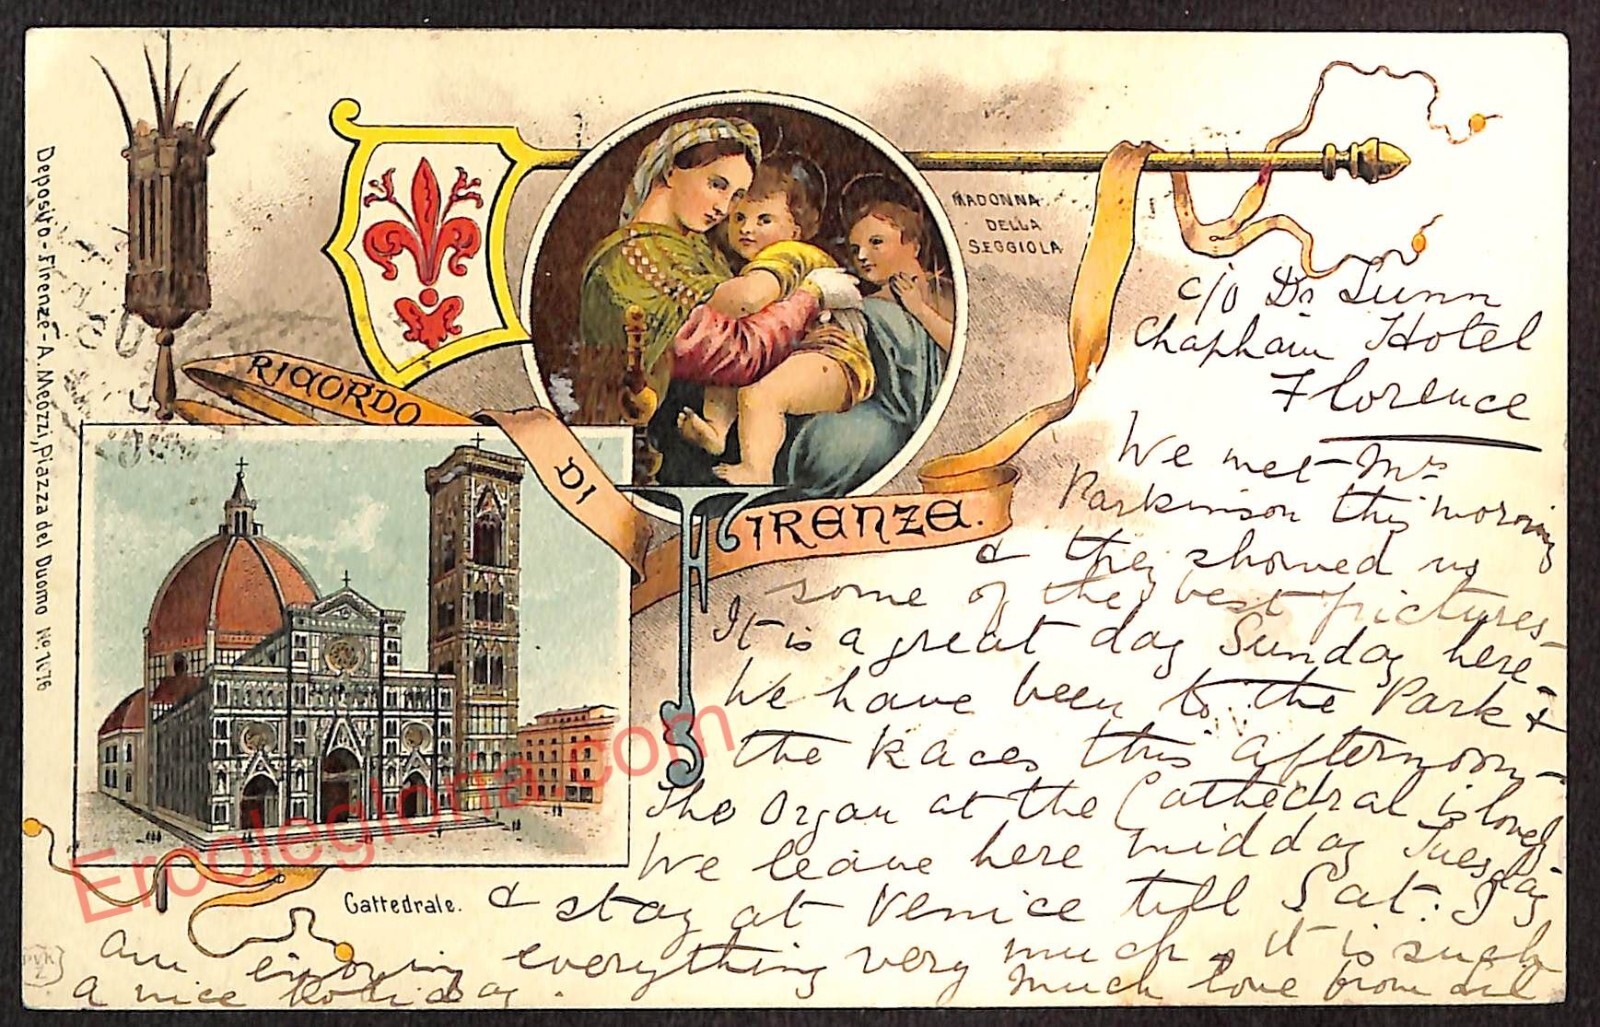 Deposito - Firenze - A. Meozzi, Piazza del Duomo No. 1676
RICORDO
DI
FIRENZE.
MADONNA
DELLA
SEGGIOLA
Cattedrale.
c/o Dr Lunn
Chapham Hotel
Florence
We met Mrs
Parkinson this morning
& they showed us
some of the best pictures -
It is a great day Sunday here -
We have been to the Park &
the Races this afternoon -
The Organ at the Cathedral is lovely
We leave here midday Tuesday
& stay at Venice till Sat: I
am enjoying everything very much, it is such
a nice holiday. Much love from
Ercolegloria.com